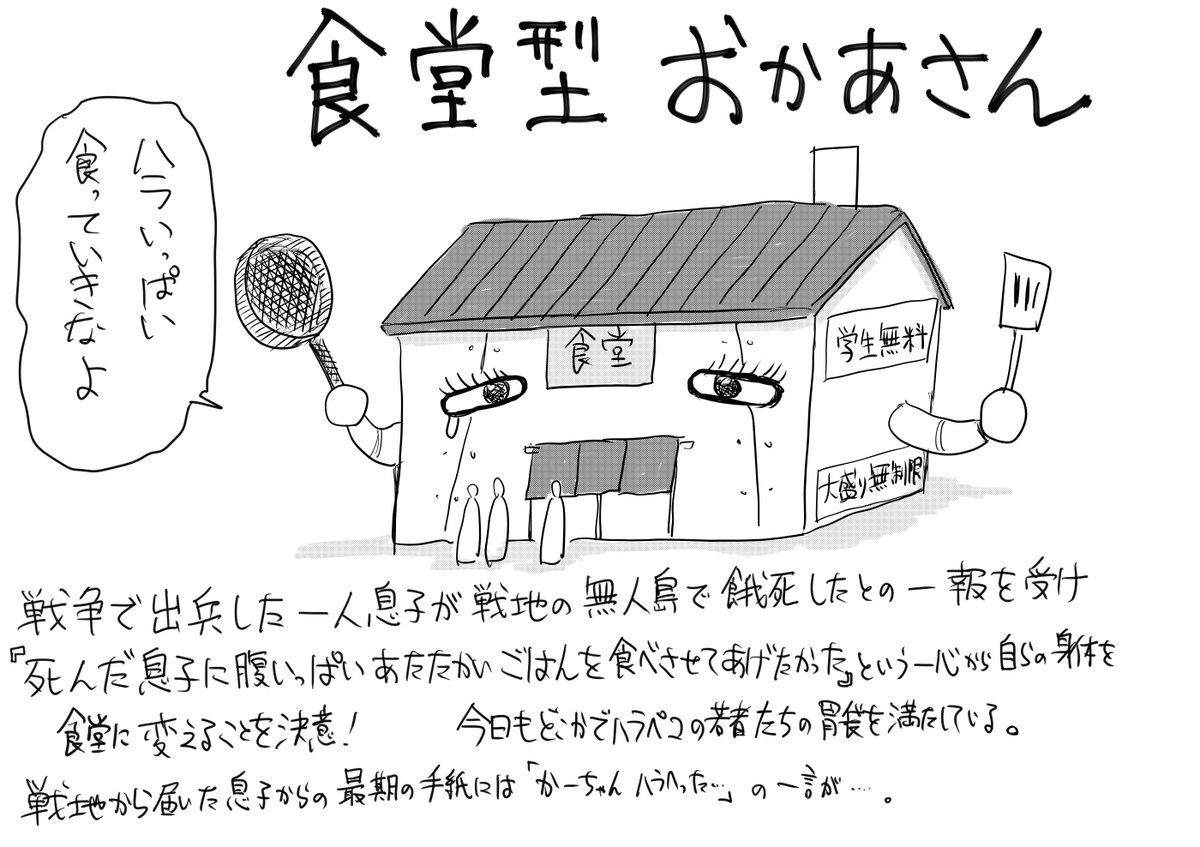 食堂型 おかあさん
ハラいっぱい
食っていきなよ
食堂
学生無料
大盛り無制限
戦争で出兵した一人息子が戦地の無人島で餓死したとの一報を受け
『死んだ息子に腹いっぱいあたたかいごはんを食べさせてあげたかった』という一心から自らの身体を
食堂に変えることを決意! 今日もどこかでハラペコの若者たちの胃袋を満たしている。
戦地から届いた息子からの最期の手紙には「かーちゃん ハラへった…」の一言が…。